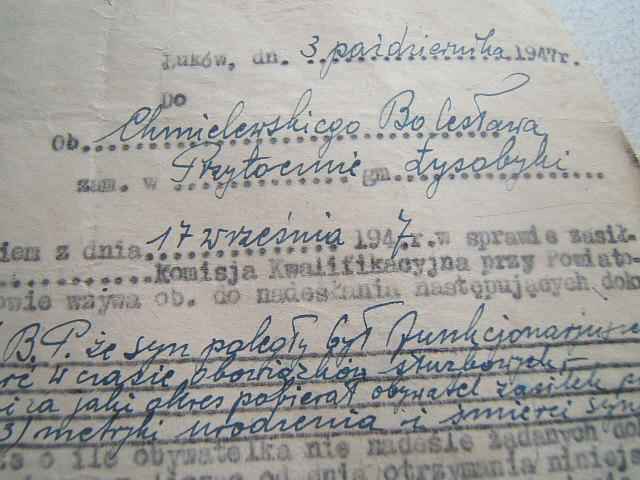 Łuków, dn. 3 października 1947r.
Do
Ob. Chmielewskiego Bolesława
zam. w Przytocznie gm. Łysobyki
iem z dnia 17 września 1947.r. w sprawie zasił-
Komisja Kwalifikacyjna przy Powiato-
owie wzywa ob. do nadesłania następujących doku
B.P. że syn poległy był funkcjonariusze
w czasie obowiązków służbowych
i za jaki okres pobierał obywatel zasiłek
3) metryki urodzenia i śmierci syn
o ile obywatelka nie nadeśle żądanych do
od dnia otrzymania niniejs